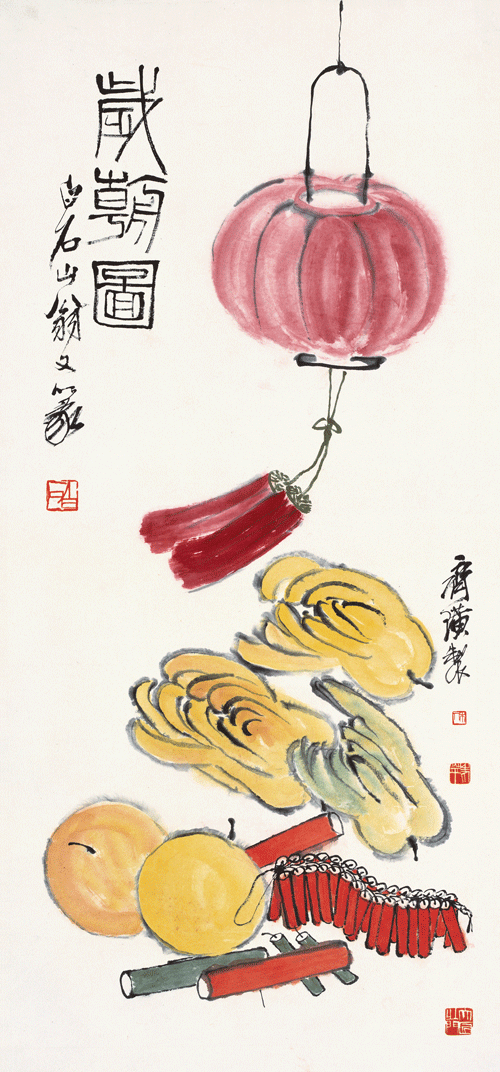 歲朝圖
白石山翁又篆
齊璜製